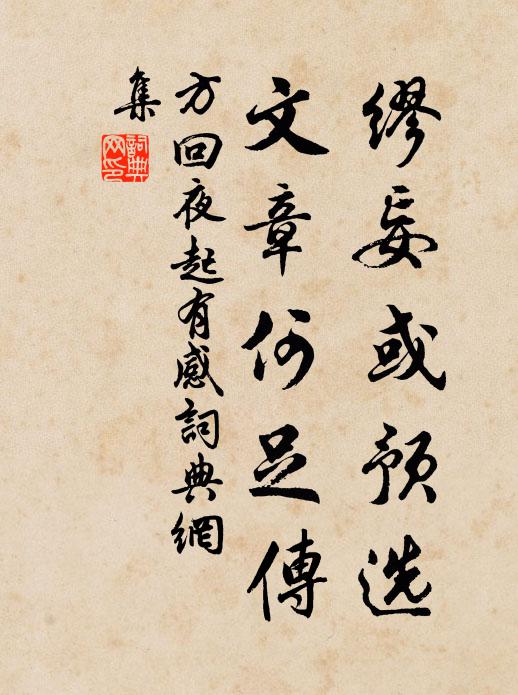 缪妄或预选
文章何足傳
方回夜起有感詞典網
集
詞典
网印